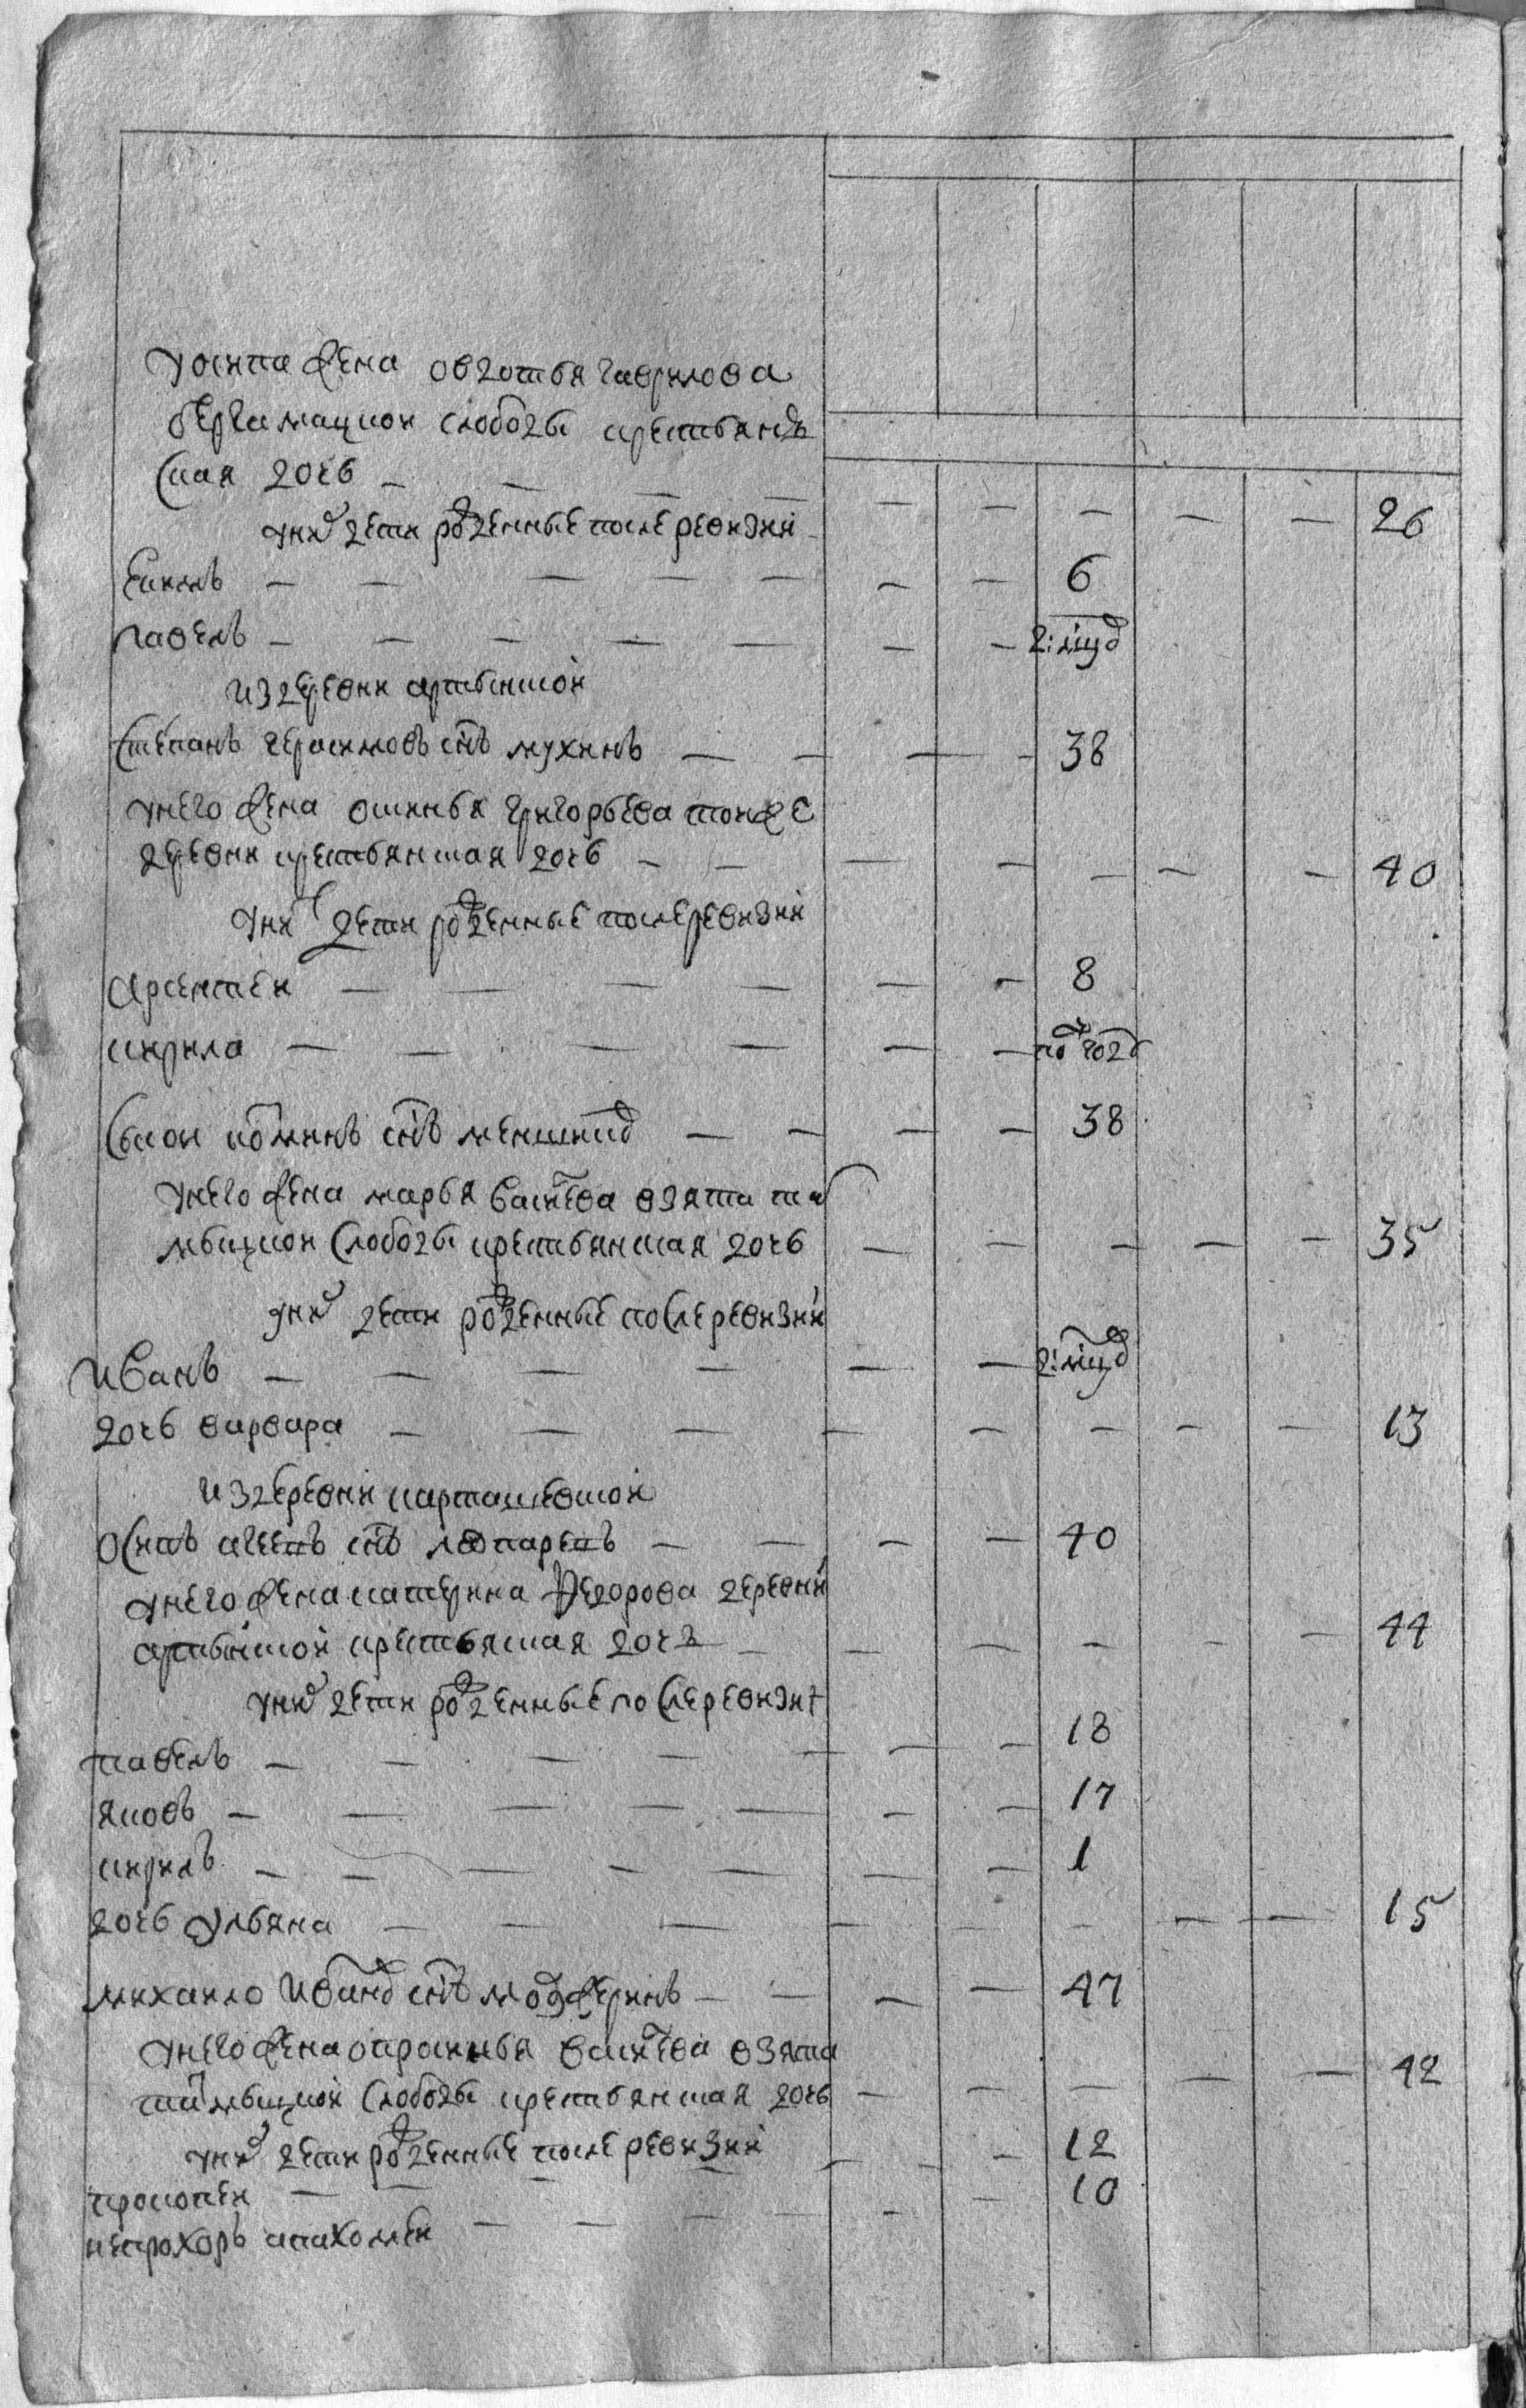 у осипа жена овдотья гаврилова
бергамацкой слободы крестьянъ
ская дочь — — — — — — — — — 26
у них дети рожденные после ревизии
екимъ — — — — — — — 6
павелъ — — — — — — — 2: мцуд
из деревни артынской
степанъ герасимовъ снъ мухинъ — — — — 38
у него жена офимья григорьева той же
деревни крестьянская дочь — — — — — — — 40
у них дети рожденные после ревизии
арсентей — — — — — — 8
кирила — — — — — — полгода
сысой козминъ снъ меншико — — — — 38
у него жена марья василева взята та
мыцкой слободы крестьянская дочь — — — — — 35
у них дети рожденные после ревизии
иванъ — — — — — — 2: мцуд
дочь варвара — — — — — — — — 13
из деревни карташевской
осипъ агеевъ снъ — — — — 40
у него жена катерина федорова деревни
артынской крестьянская дочь — — — — — — 44
у них дети рожденные после ревизи
павелъ — — — — — — — 18
яковъ — — — — — — — 17
кирилъ — — — — — — — 1
дочь ульяна — — — — — — — — 15
михаило иванов снъ можжеринъ — — — — 47
у него жена офросинья василева взята
такмыцкой слободы крестьянская дочь — — — — — 42
у них дети рожденные после ревизии — — — 12
прокопей — — — — — 10
непрохоръ ипахомей — — — — —